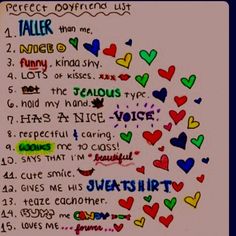 Perfect Boyfriend List
1. TALLER than me.
2. NICE
3. funny. kinda shy.
4. LOTS of kisses. xxx
5. not the JEALOUS type.
6. hold my hand.
7. HAS A NICE - VOICE -
8. respectful & caring.
9. WALKS me to class!
10. SAYS THAT I'M "beautiful"
11. cute smile.
12. GIVES HIS SWEATSHIRT
13. teaze eachother.
14. BUY me CANDY
15. LOVES ME ...forever...